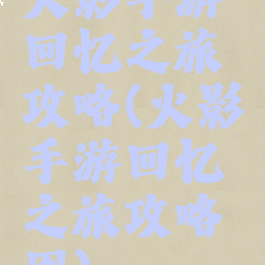 火影手游
回忆之旅
攻略(火影
手游回忆
之旅攻略
图)